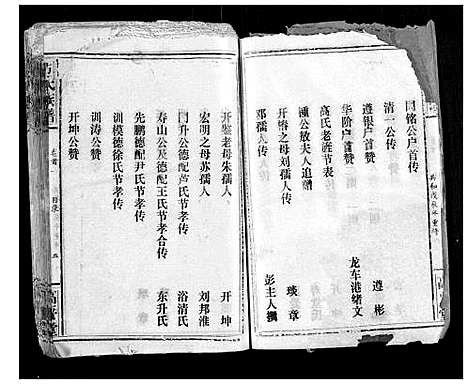 公户首传
清一公传
遵银户首传 遵彬
华阶户首传
高氏老谱节表 龙车港绪文
公放夫人追赠
开椿之母刘孺人传 琰章
邓孺人传 彭主人撰
开鉴老母朱孺人 开坤
宏明之母苏孺人 刘邦淮
公德配芦氏传 浴清氏
寿山公及德配王氏节孝合传 东升氏
先鹏德配尹氏节孝传
训模德徐氏节孝传
训涛公赞
开坤公赞